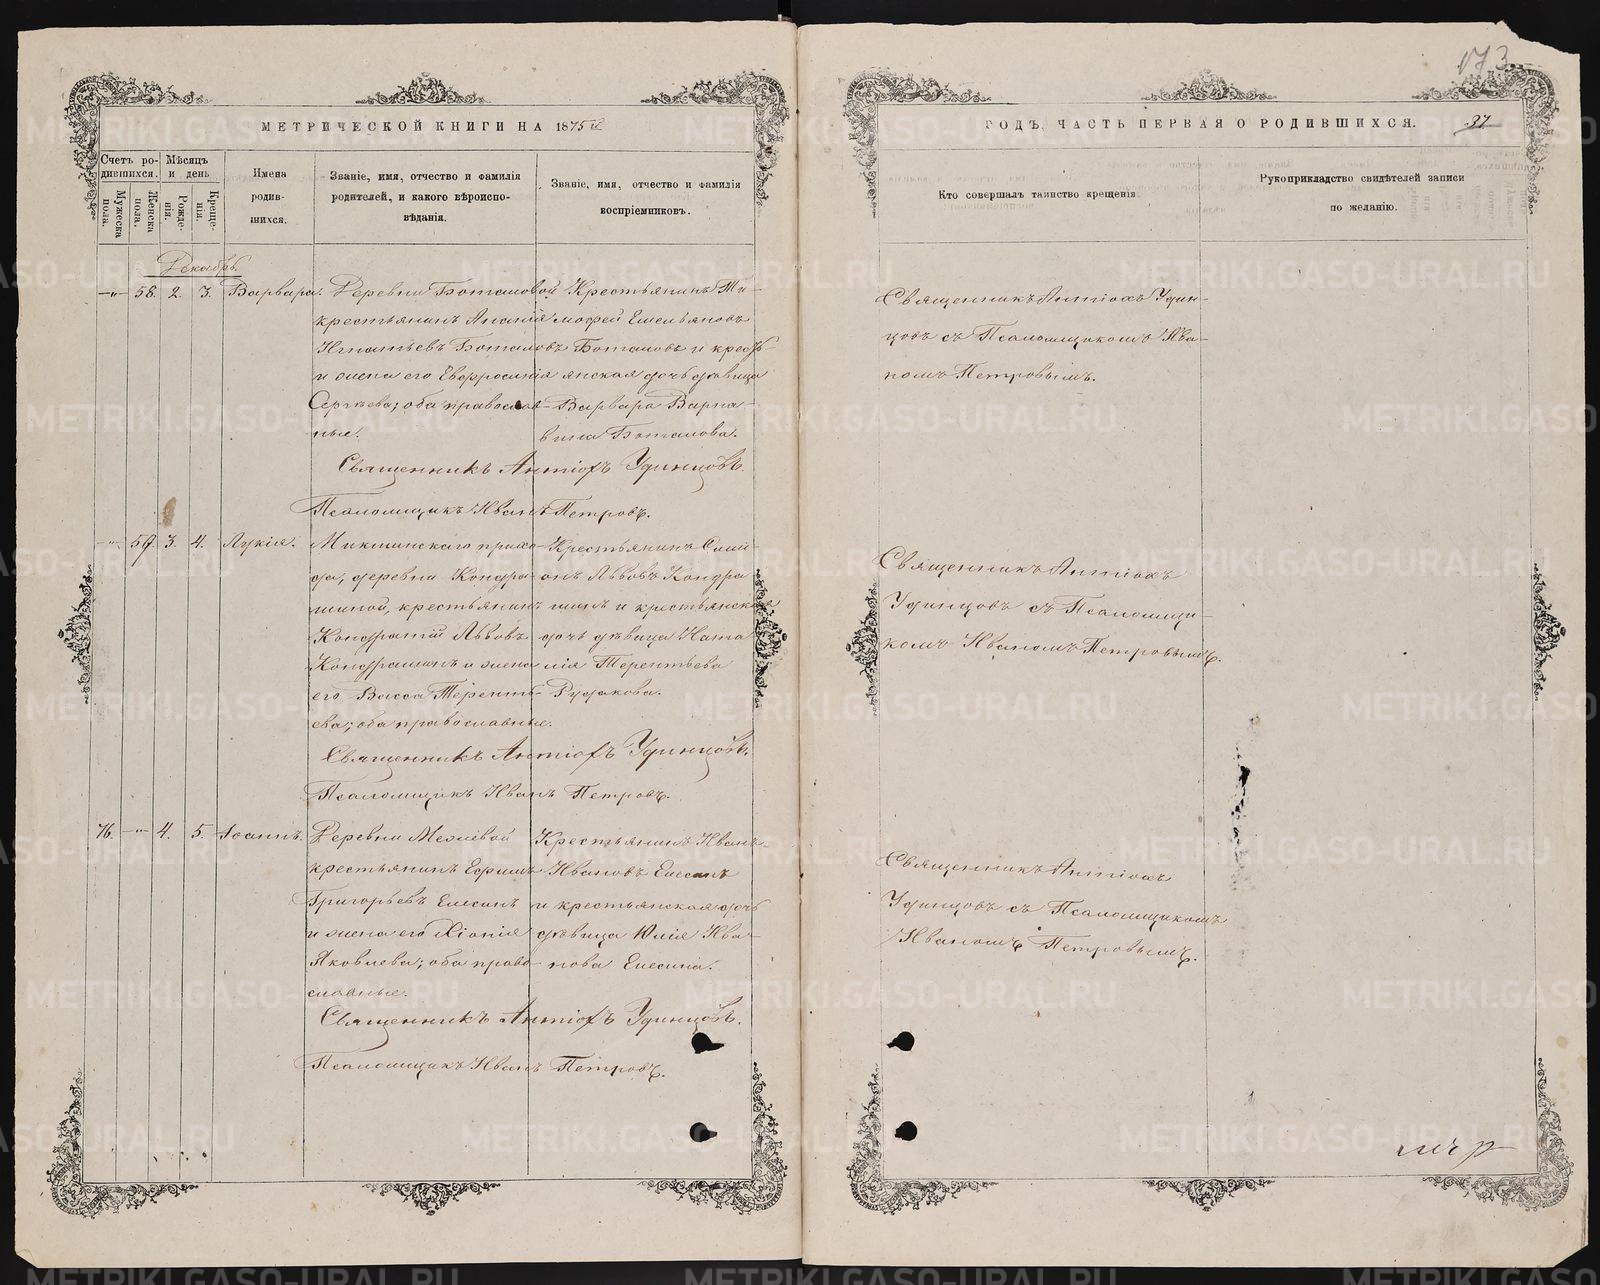 173
МЕТРИЧЕСКОЙ КНИГИ НА 1875й
Счетъ ро-
дившихся.
Мѣсяцъ
и день
Мужеска
пола.
Женска
пола.
Рожде-
нія.
Креще-
нія.
Имена
родив-
шихся.
Званіе, имя, отчество и фамилія
родителей, и какого вѣроиспо-
вѣданія.
Званіе, имя, отчество и фамилія
воспріемниковъ.
Декабрь.
—„— 58. 2. 3. Варвара.
Деревни Боталовой
крестьянинъ Ананій
Игнатьевъ Боталовъ
и жена его Евфросинія
Сергѣева; оба православ-
ные.
Крестьянинъ Ти-
мофей Емельяновъ
Боталовъ и кресть-
янская дочь дѣвица
Варвара Варна-
вина Боталова.
Священникъ Антіохъ Удинцовъ.
Псаломщикъ Иванъ Петровъ.
—„— 59. 3. 4. Лукія.
Микшинскаго прихо-
да, деревни Кондра-
шиной, крестьянинъ
Кондратій Львовъ
Кондрашинъ и жена
его Васса Теренть-
ева; оба православные.
Крестьянинъ Сими-
онъ Львовъ Кондра
шинъ и крестьянская
дочь дѣвица Ната
лія Терентьева
Рудакова.
Священникъ Антіохъ Удинцовъ.
Псаломщикъ Иванъ Петровъ.
76. —„— 4. 5. Іоаннъ.
Деревни Межевой
крестьянинъ Ефимъ
Григорьевъ Елесинъ
и жена его Хіонія
Яковлева; оба право-
славные.
Крестьянинъ Иванъ
Ивановъ Елесинъ
и крестьянская дочь
дѣвица Юлія Ива-
нова Елесина.
Священникъ Антіохъ Удинцовъ.
Псаломщикъ Иванъ Петровъ.
ГОДЪ, ЧАСТЬ ПЕРВАЯ О РОДИВШИХСЯ. 97
Кто совершалъ таинство крещенія
Рукоприкладство свидѣтелей записи
по желанію.
Священникъ Антіохъ Удин-
цовъ съ Псаломщикомъ Ива-
номъ Петровымъ.
Священникъ Антіохъ
Удинцовъ съ Псаломщи-
комъ Иваномъ Петровымъ.
Священникъ Антіохъ
Удинцовъ съ Псаломщикомъ
Иваномъ Петровымъ.
METRIKI.GASO-URAL.RU